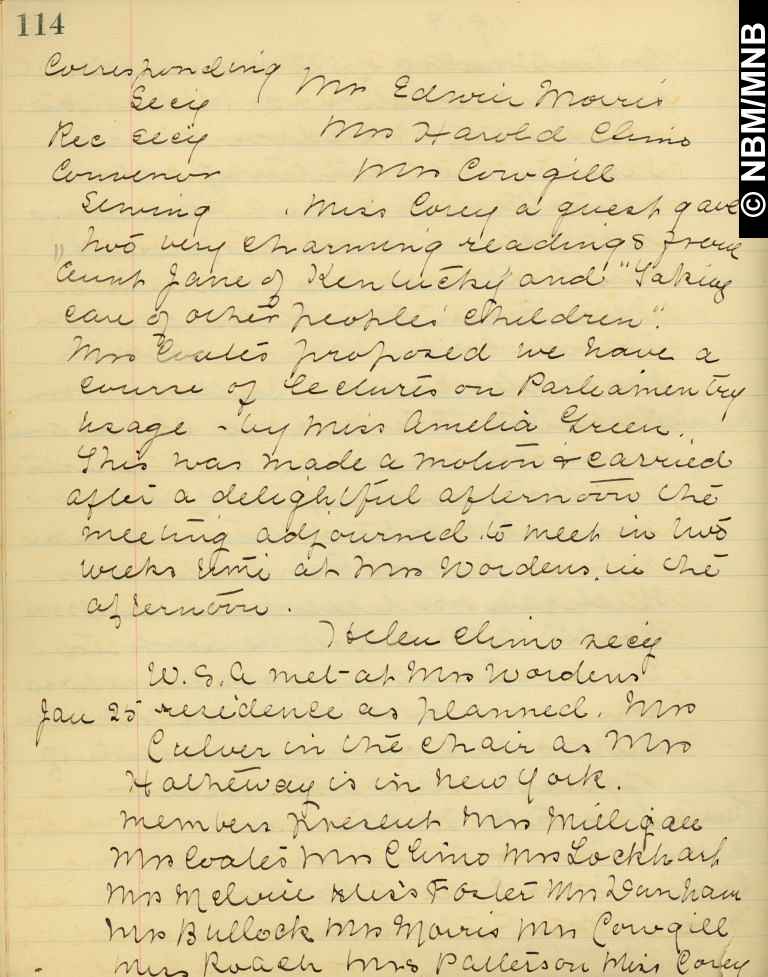 114
© NBM/MNB
Corresponding
Secy Mrs Edwin Morris
Rec Secy Mrs Harold Climo
Convenor Mrs Cowgill
Sewing . Miss Corey a guest gave
two very charming readings from
"Aunt Jane of Kentucky" and "Taking
care of other peoples' children".
Mrs Coates proposed we have a
course of lectures on Parliamentry
usage - by Miss Amelia Green.
This was made a motion & carried
after a delightful afternoon the
meeting adjourned to meet in two
weeks time at Mrs Wordens, in the
afternoon.
Helen Climo secy
W. S. A met at Mrs Wordens
Jan 25 residence as planned. Mrs
Culver in the chair as Mrs
Hatheway is in New York.
Members Present Mrs Milligan
Mrs Coates Mrs Climo Mrs Lockhart
Mrs Melvin Miss Foster Mrs Dunham
Mrs Bullock Mrs Morris Mrs Cowgill
Mrs Roach Mrs Patterson Miss Corey